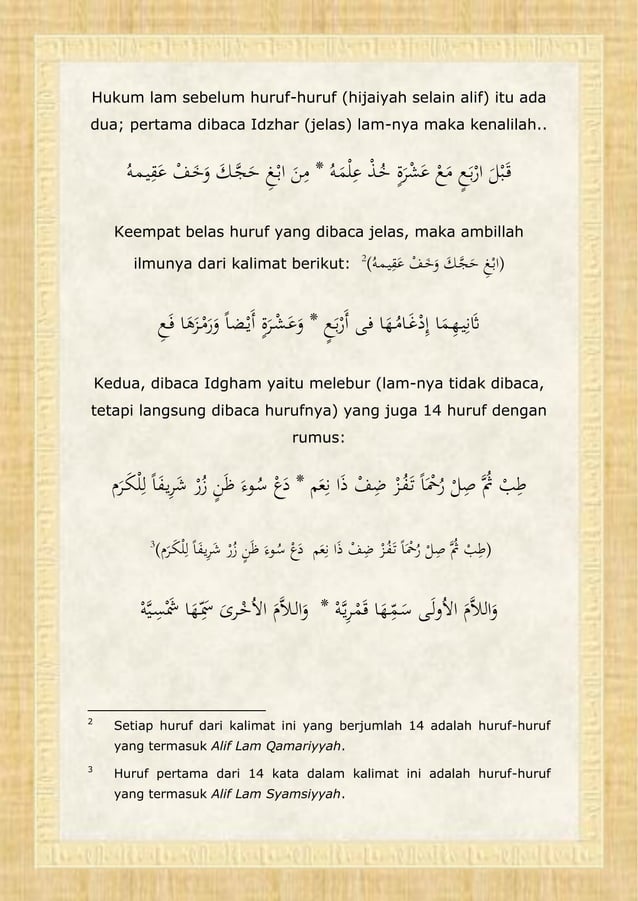 Hukum lam sebelum huruf-huruf (hijaiyah selain alif) itu ada
dua; pertama dibaca Idzhar (jelas) lam-nya maka kenalilah..
قَبْلَ ارْبَعٍ مَعْ عَشْرَةٍ خُذْ عِلْمَهُ * مِنَ ابْغِ حَجَّكَ وَخَفْ عَقِيمهُ
Keempat belas huruf yang dibaca jelas, maka ambillah
ilmunya dari kalimat berikut: (ابْغِ حَجَّكَ وَخَفْ عَقِيمهُ)2
ثَانِيهِمَا إِدْغَامُهَا فى أَرْبَعٍ * وَعَشْرَةٍ أَيْضاً وَرَمْزَهَا فَعِ
Kedua, dibaca Idgham yaitu melebur (lam-nya tidak dibaca,
tetapi langsung dibaca hurufnya) yang juga 14 huruf dengan
rumus:
طِبْ ثُمَّ صِلْ رُحْمَاً تَفُزْ ضِفْ ذَا نِعَم * دَعْ سُوءَ ظَنٍ زُرْ شَرِيفَاً لِلْكَرَم
(طِبْ ثُمَّ صِلْ رُحْمَاً تَفُزْ ضِفْ ذَا نِعَم دَعْ سُوءَ ظَنٍ زُرْ شَرِيفَاً لِلْكَرَم)3
وَاللاَّمَ الاُولَى سَمِّهَا قَمْرِيَّهْ * وَاللاَّمَ الاُخْرىَ سَمِّهَا شَمْسِيَّهْ
2 Setiap huruf dari kalimat ini yang berjumlah 14 adalah huruf-huruf
yang termasuk Alif Lam Qamariyyah.
3 Huruf pertama dari 14 kata dalam kalimat ini adalah huruf-huruf
yang termasuk Alif Lam Syamsiyyah.